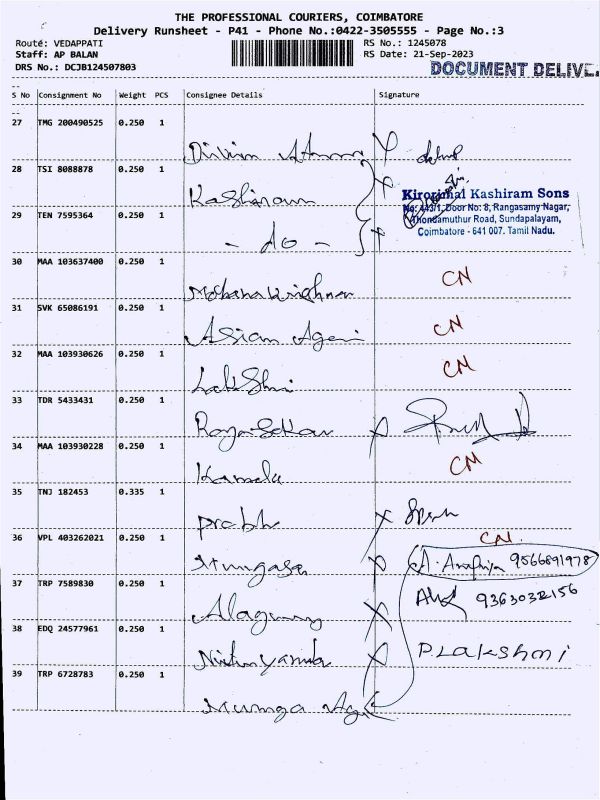 THE PROFESSIONAL COURIERS, COIMBATORE
Delivery Runsheet - P41 - Phone No.:0422-3505555 - Page No.:3
Route: VEDAPPATI RS No.: 1245078
Staff: AP BALAN RS Date: 21-Sep-2023
DRS No.: DCJB124507803 DOCUMENT DELIVE
S No Consignment No Weight PCS Consignee Details Signature
27 TMG 200490525 0.250 1
28 TSI 8088878 0.250 1 Kashiram
Kirorimal Kashiram Sons
No: 443/1, Door No: 8, Rangasamy Nagar,
Thondamuthur Road, Sundapalayam,
Coimbatore - 641 007. Tamil Nadu.
29 TEN 7595364 0.250 1 - do -
30 MAA 103637400 0.250 1 Mohanakrishnan CN
31 SVK 65086191 0.250 1 Asian Agen CN
32 MAA 103930626 0.250 1 Lakshmi CN
33 TDR 5433431 0.250 1 Rajasekar
34 MAA 103930228 0.250 1 Kamala CN
35 TNJ 182453 0.335 1 prabhu
36 VPL 403262021 0.250 1 Murugasa CN
A. 9566891978
37 TRP 7589830 0.250 1 9363032156
38 EDQ 24577961 0.250 1 P. Lakshmi
39 TRP 6728783 0.250 1